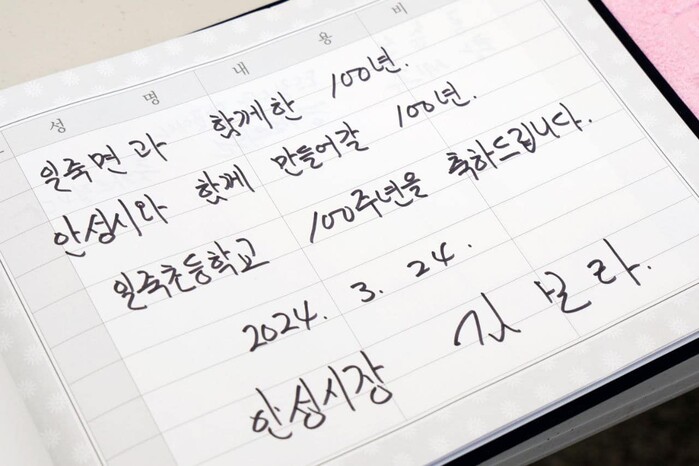 성 명 내 용 비
일죽면과 함께한 100년.
안성시와 함께 만들어갈 100년.
일죽초등학교 100주년을 축하드립니다.
2024. 3. 24.
안성시장 김보라.